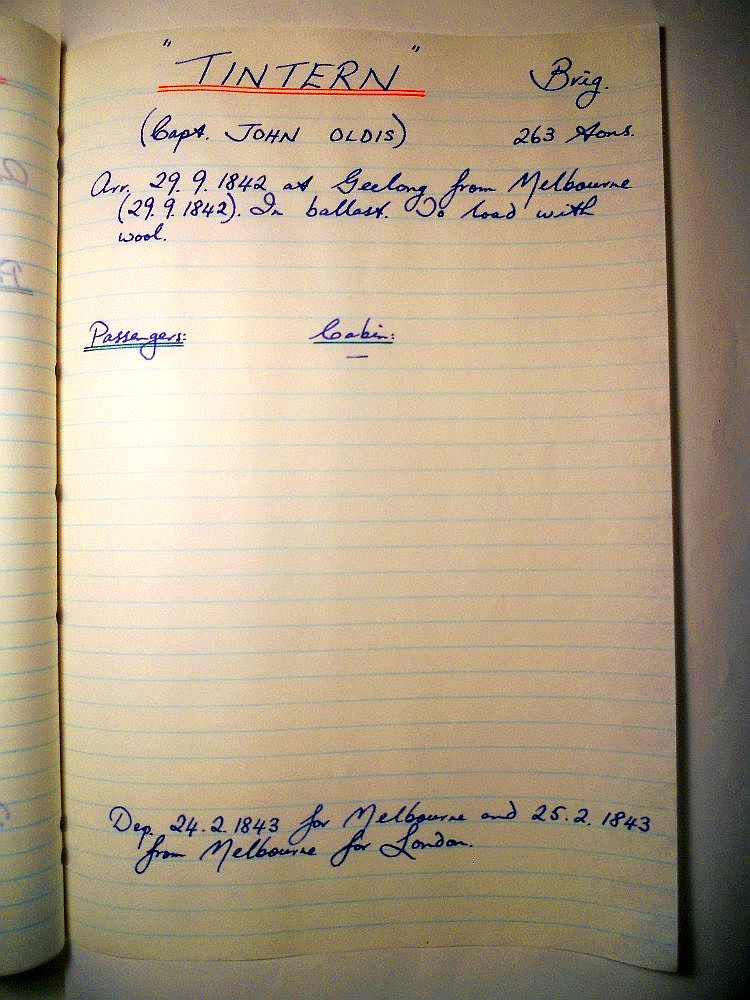 "TINTERN" Brig.
(Capt. JOHN OLDIS) 263 tons.
Arr. 29.9.1842 at Geelong from Melbourne
(29.9.1842). In ballast. To load with
wool.
Passengers: Cabin:
—
Dep. 24.2.1843 for Melbourne and 25.2.1843
from Melbourne for London.